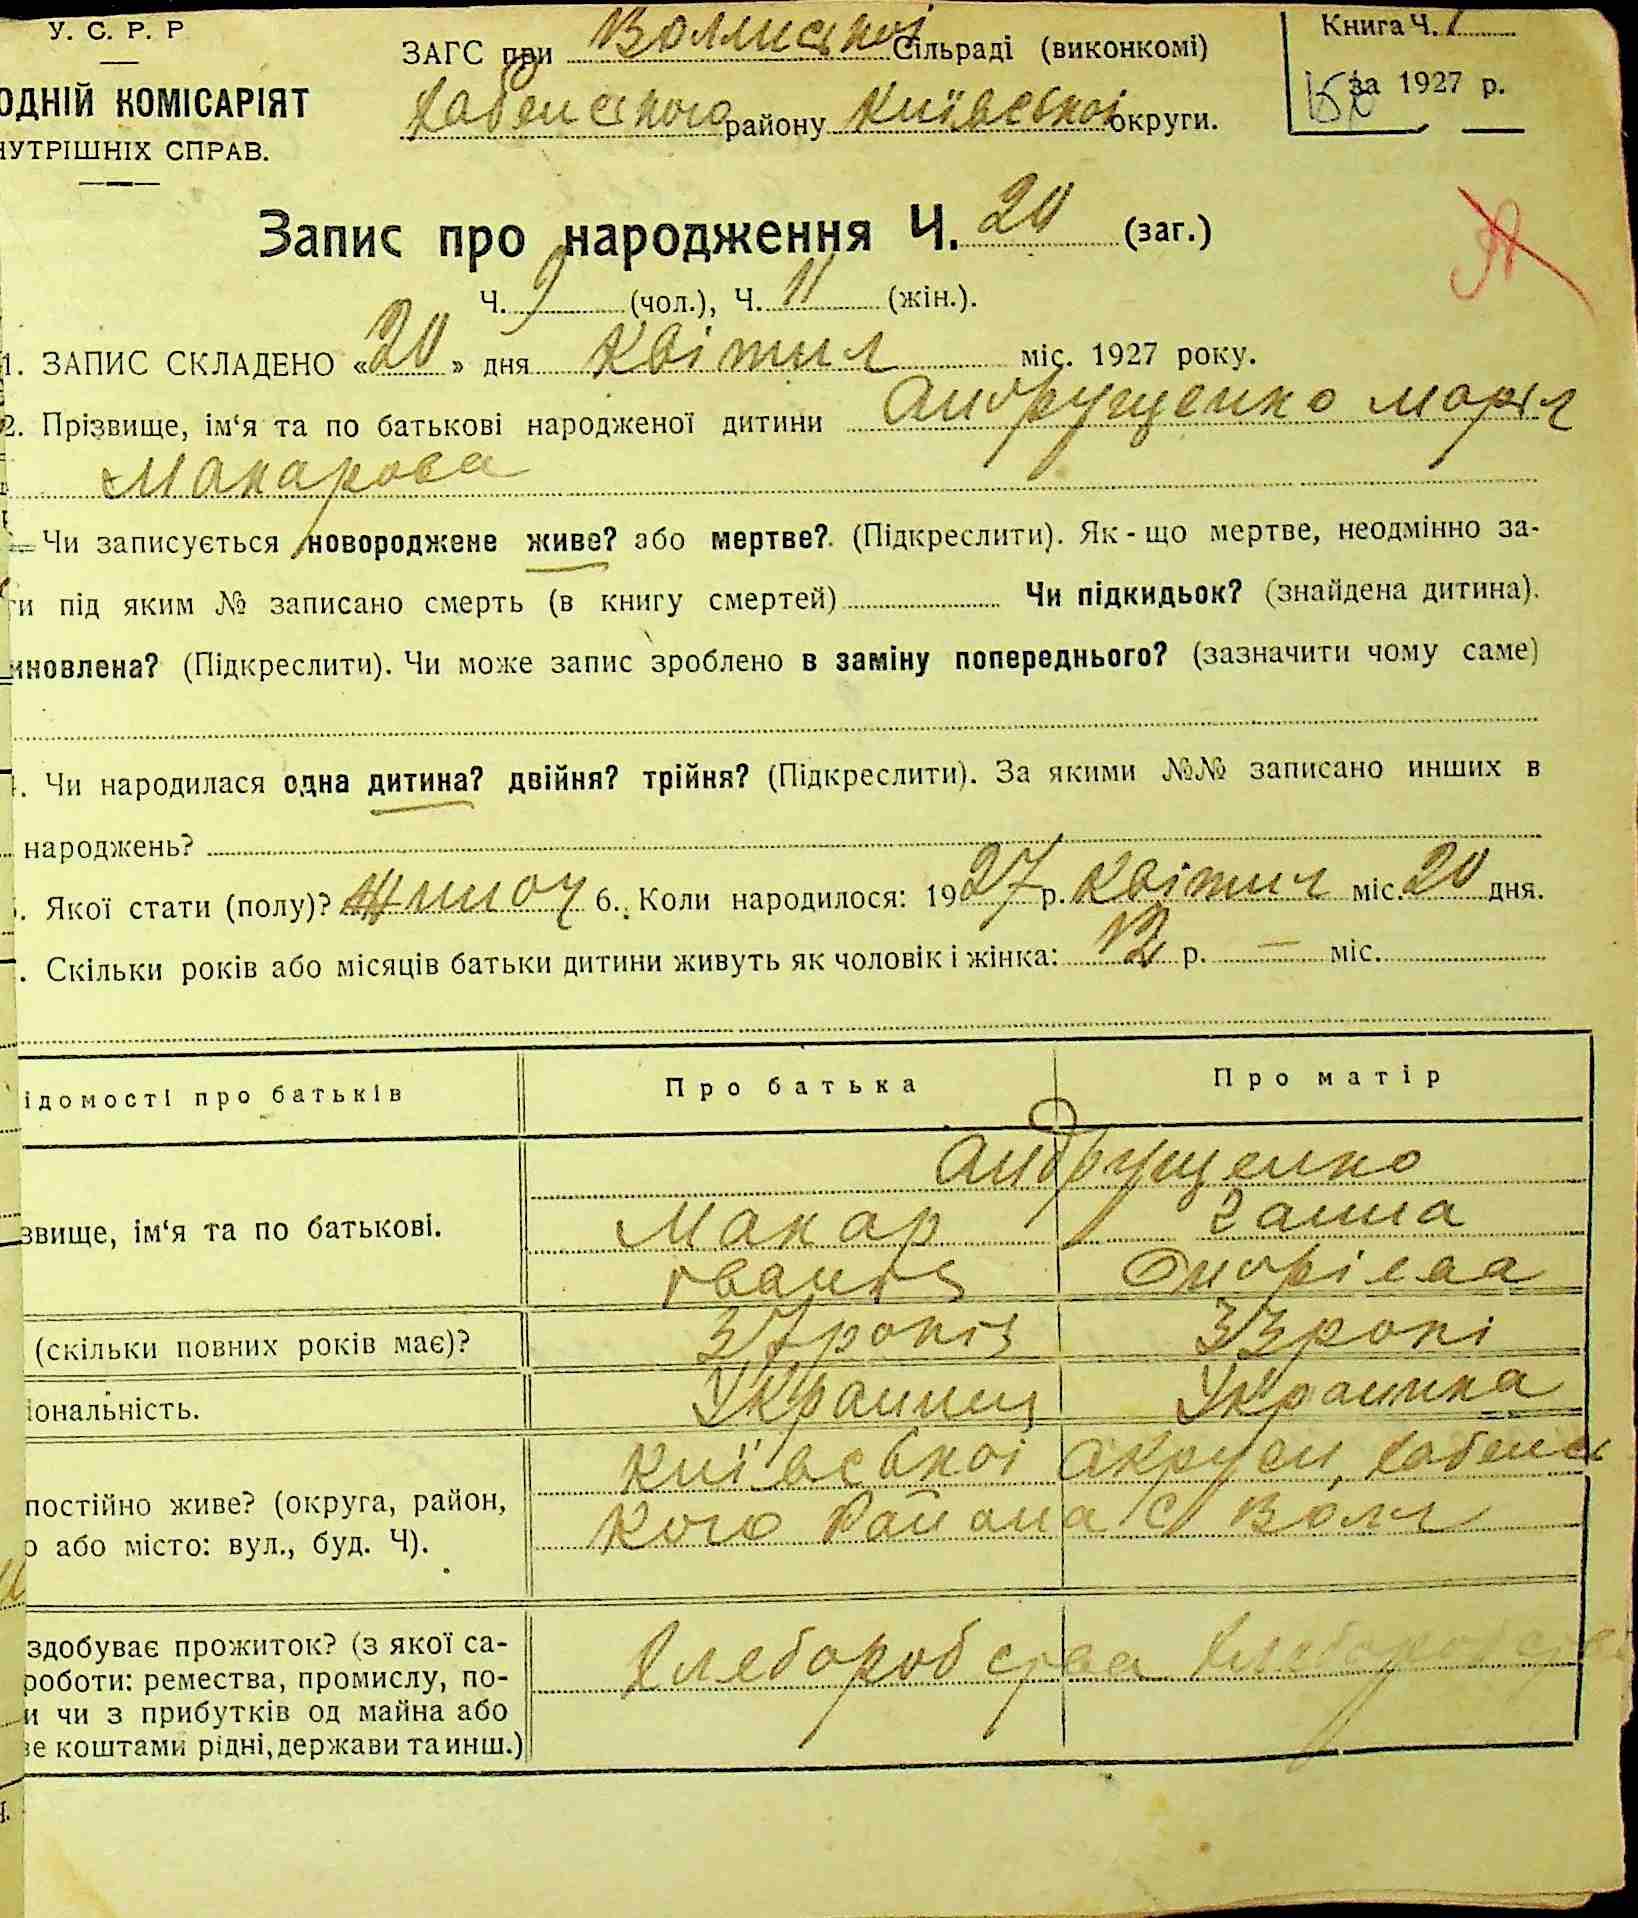 У. С. Р. Р
ОДНІЙ КОМІСАРІЯТ
НУТРІШНІХ СПРАВ.
ЗАГС при Волянської Сільраді (виконкомі)
Хабенського району Київської округи.
Книга Ч. 1
за 1927 р.
Запис про народження Ч. 20 (заг.)
Ч. 9 (чол.), Ч. 11 (жін.).
1. ЗАПИС СКЛАДЕНО «20» дня Квітня міс. 1927 року.
2. Прізвище, ім‘я та по батькові народженої дитини Андрущенко Марія
Макарова
Чи записується новороджене живе? або мертве? (Підкреслити). Як-що мертве, неодмінно за-
ти під яким № записано смерть (в книгу смертей) Чи підкидьок? (знайдена дитина).
иновлена? (Підкреслити). Чи може запис зроблено в заміну попереднього? (зазначити чому саме)
. Чи народилася одна дитина? двійня? трійня? (Підкреслити). За якими №№ записано инших в
народжень?
. Якої стати (полу)? 6. Коли народилося: 1927 р. Квітня міс. 20 дня.
. Скільки років або місяців батьки дитини живуть як чоловік і жінка: 12 р. — міс.
ідомості про батьків Про батька Про матір
Андрущенко
звище, ім‘я та по батькові. Макар Ганна
Іванів
(скільки повних років має)? 37 років 33 рокі
іональність. Украинец Украинка
Київської округи, Хабенсь
постійно живе? (округа, район, кого Района с Воля
о або місто: вул., буд. Ч).
здобуває прожиток? (з якої са- Хлеборобства Хлеборобства
роботи: ремества, промислу, по-
и чи з прибутків од майна або
ве коштами рідні, держави та инш.)